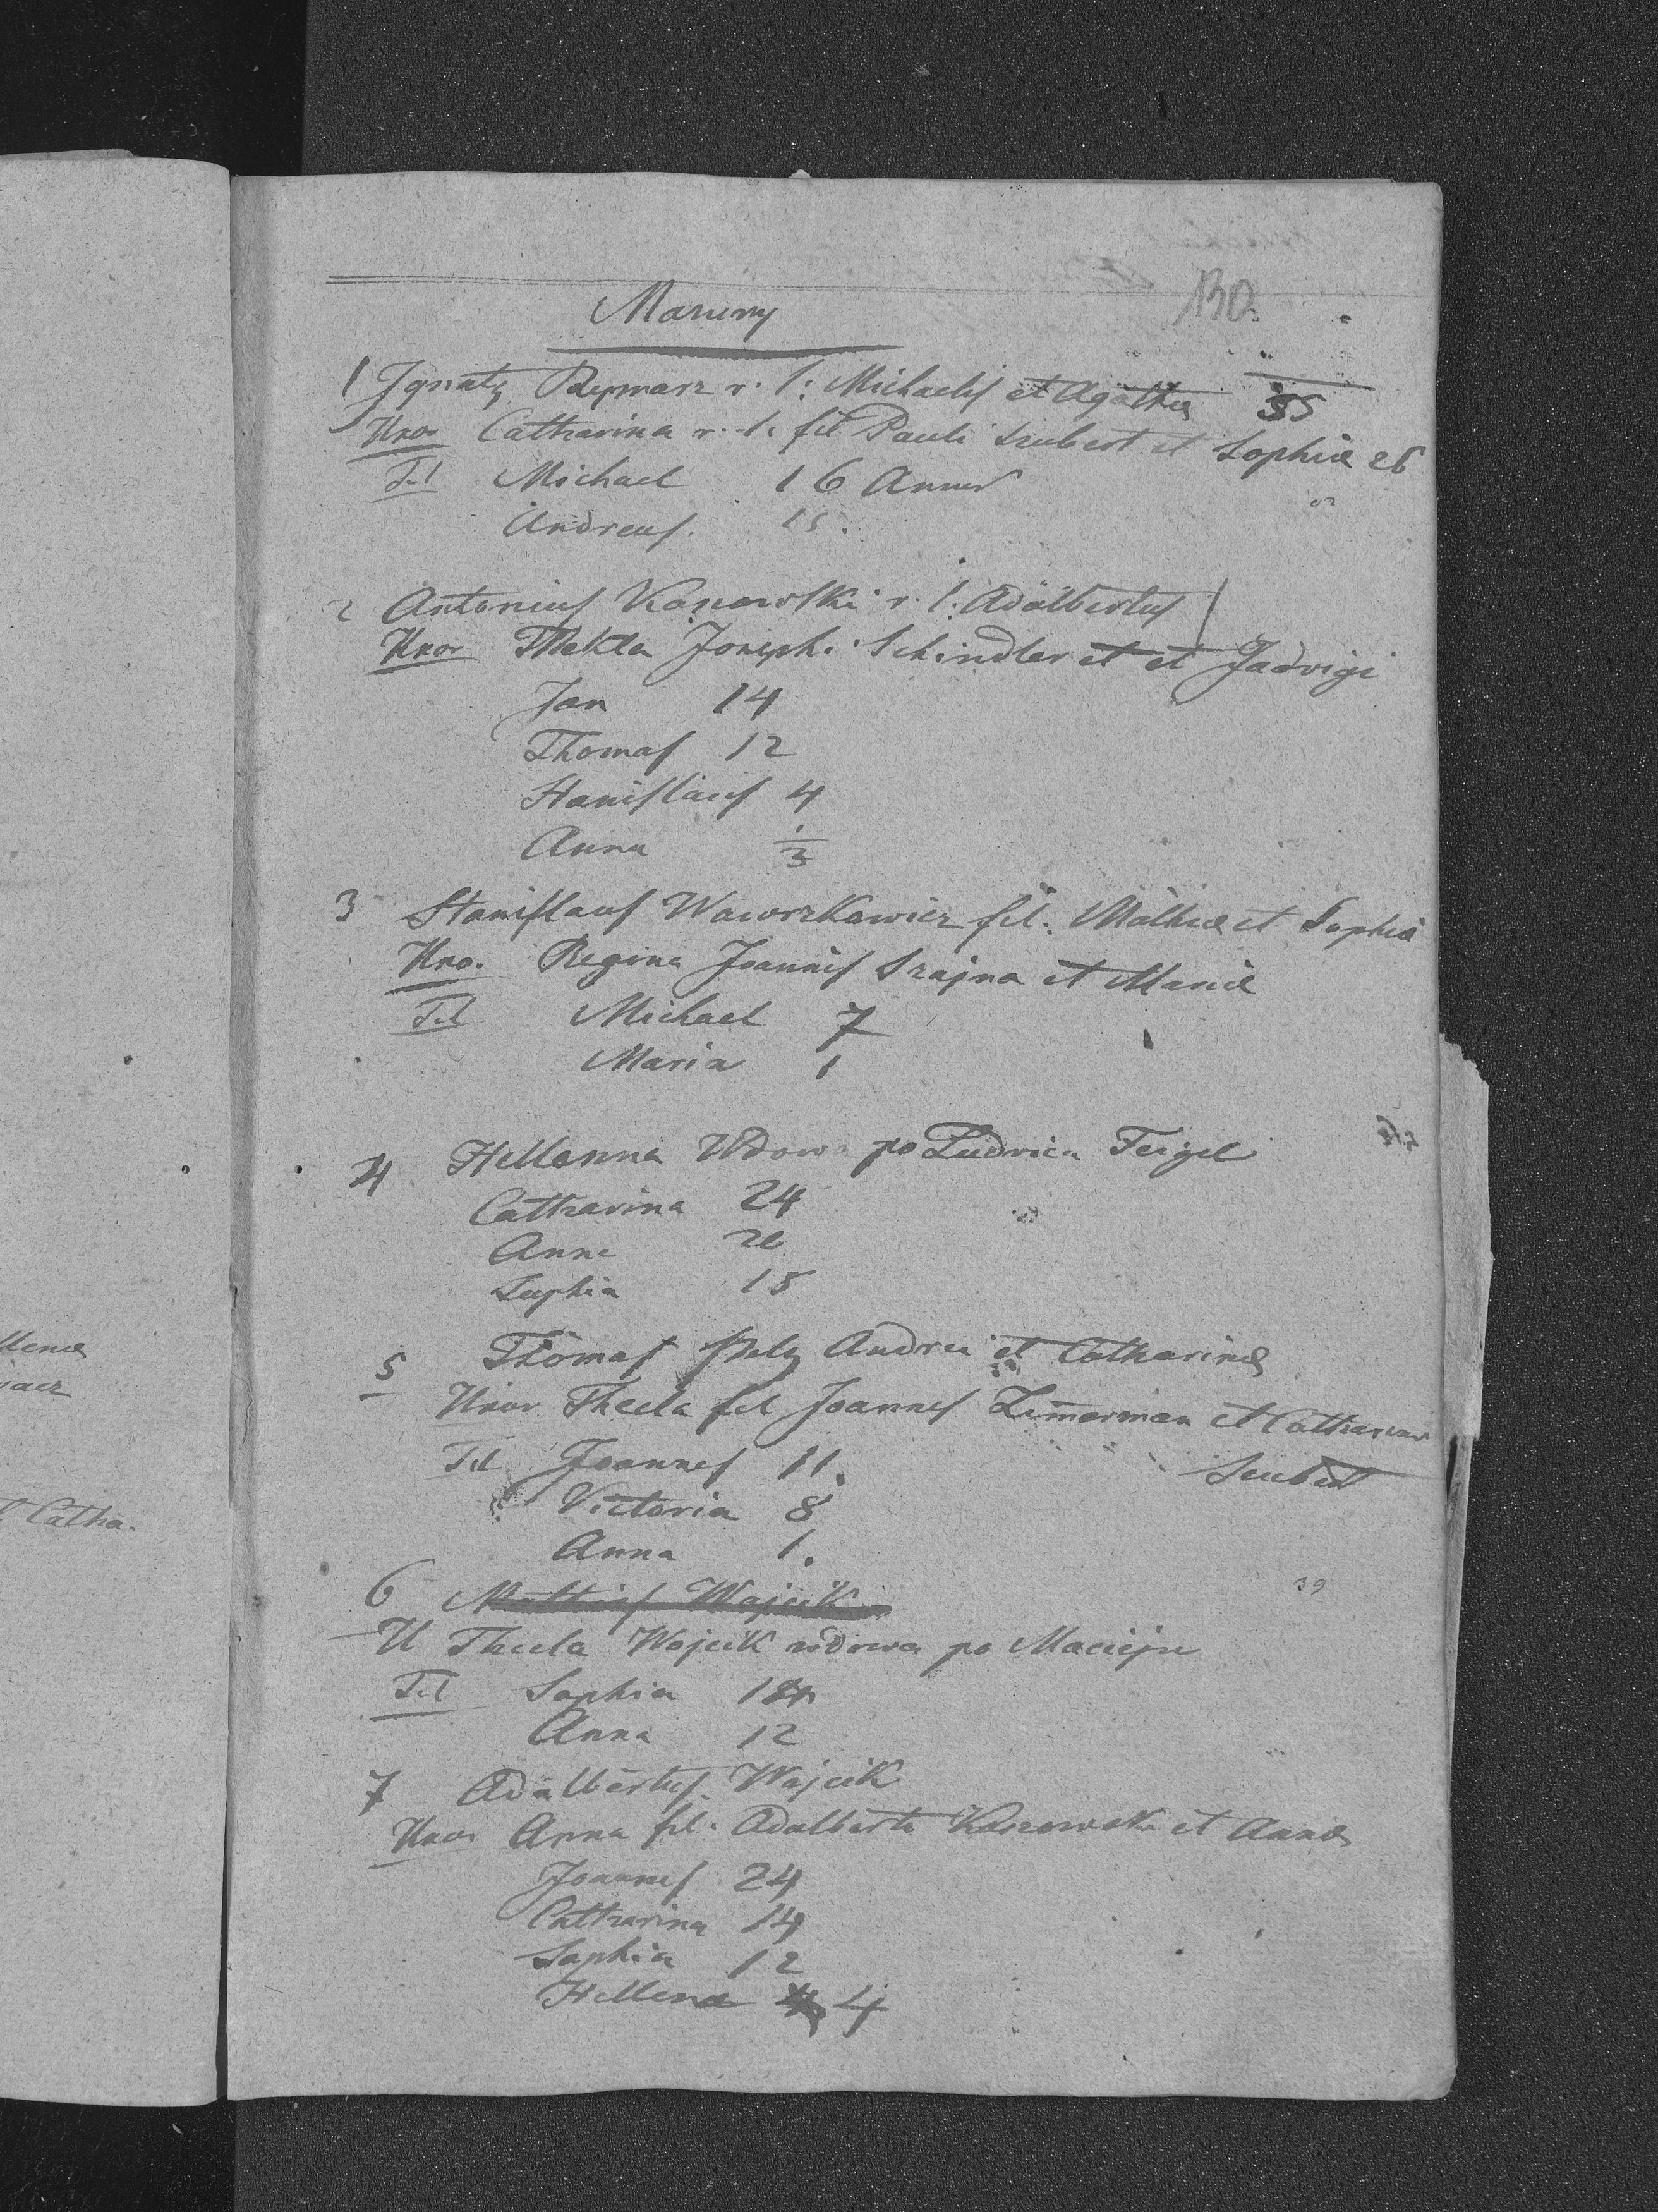 130.
Mazury
1 Ignatz Reymarz r. l: Michaelis et Agatha 35
Uxor Catharina r. l. fil Pauli Szubert et Sophiæ 26
Fil Michael 16 Annor
Andreas. 15.
2 Antonius Kozowski r. l. Adalbertus
Uxor Thekla Joseph. Schindler et et Jadvigi
Jan 14
Thomas 12
Stanislaus 4
Anna 1/3
3 Stanislaus Wawrzkowicz fil: Mathiæ et Sophiæ
Uxo. Regina Joannis Szajna et Mariæ
Fil Michael 7
Maria 1
4 Hellenna Wdow po Ludvica Feigel
Catharina 24
Anna
Sophia 18
5 Thomas Pelz Andrei et Catharinæ
Uxor Thecla fil Joannes Zimerman et Catharinæ
Szubert
Fil Joannes 11.
Victoria 8
Anna 1.
39
6 Mathias Wojcik
U Thecla Wojcik wdowa po Macieju
Fil Sophia 14
Anna 12
7 Adalbertus Wojcik
Uxor Anna fil. Adalberti Kozowski et Annæ
Joannes 24
Catharina 14
Sophia 12
Hellena 4
llenæ
Catha.